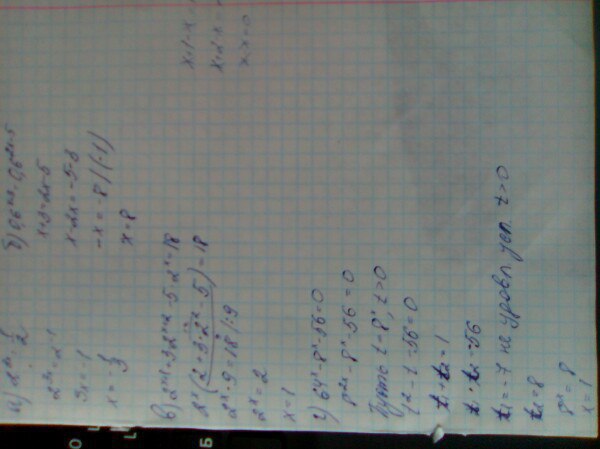 а) 2³ˣ = 1/2
2³ˣ = 2⁻¹
3x = -1
x = -1/3
б) 0,6ˣ⁺³ = 0,6²ˣ⁻⁵
x+3=2x-5
x-2x=-5-3
-x = -8 /(-1)
x=8
в) 2ˣ⁺¹+3·2ˣ⁺²-5·2ˣ=18
2ˣ(2+3·2²-5)=18
2ˣ·9=18 /:9
2ˣ=2
x=1
г) 64ˣ-8ˣ-56=0
8²ˣ-8ˣ-56=0
Пусть t=8ˣ, t>0
t2-t-56=0
t₁+t₂=1
t₁·t₂=-56
t₁=-7 не удовл. усл. t>0
t₂=8
8ˣ=8
x=1